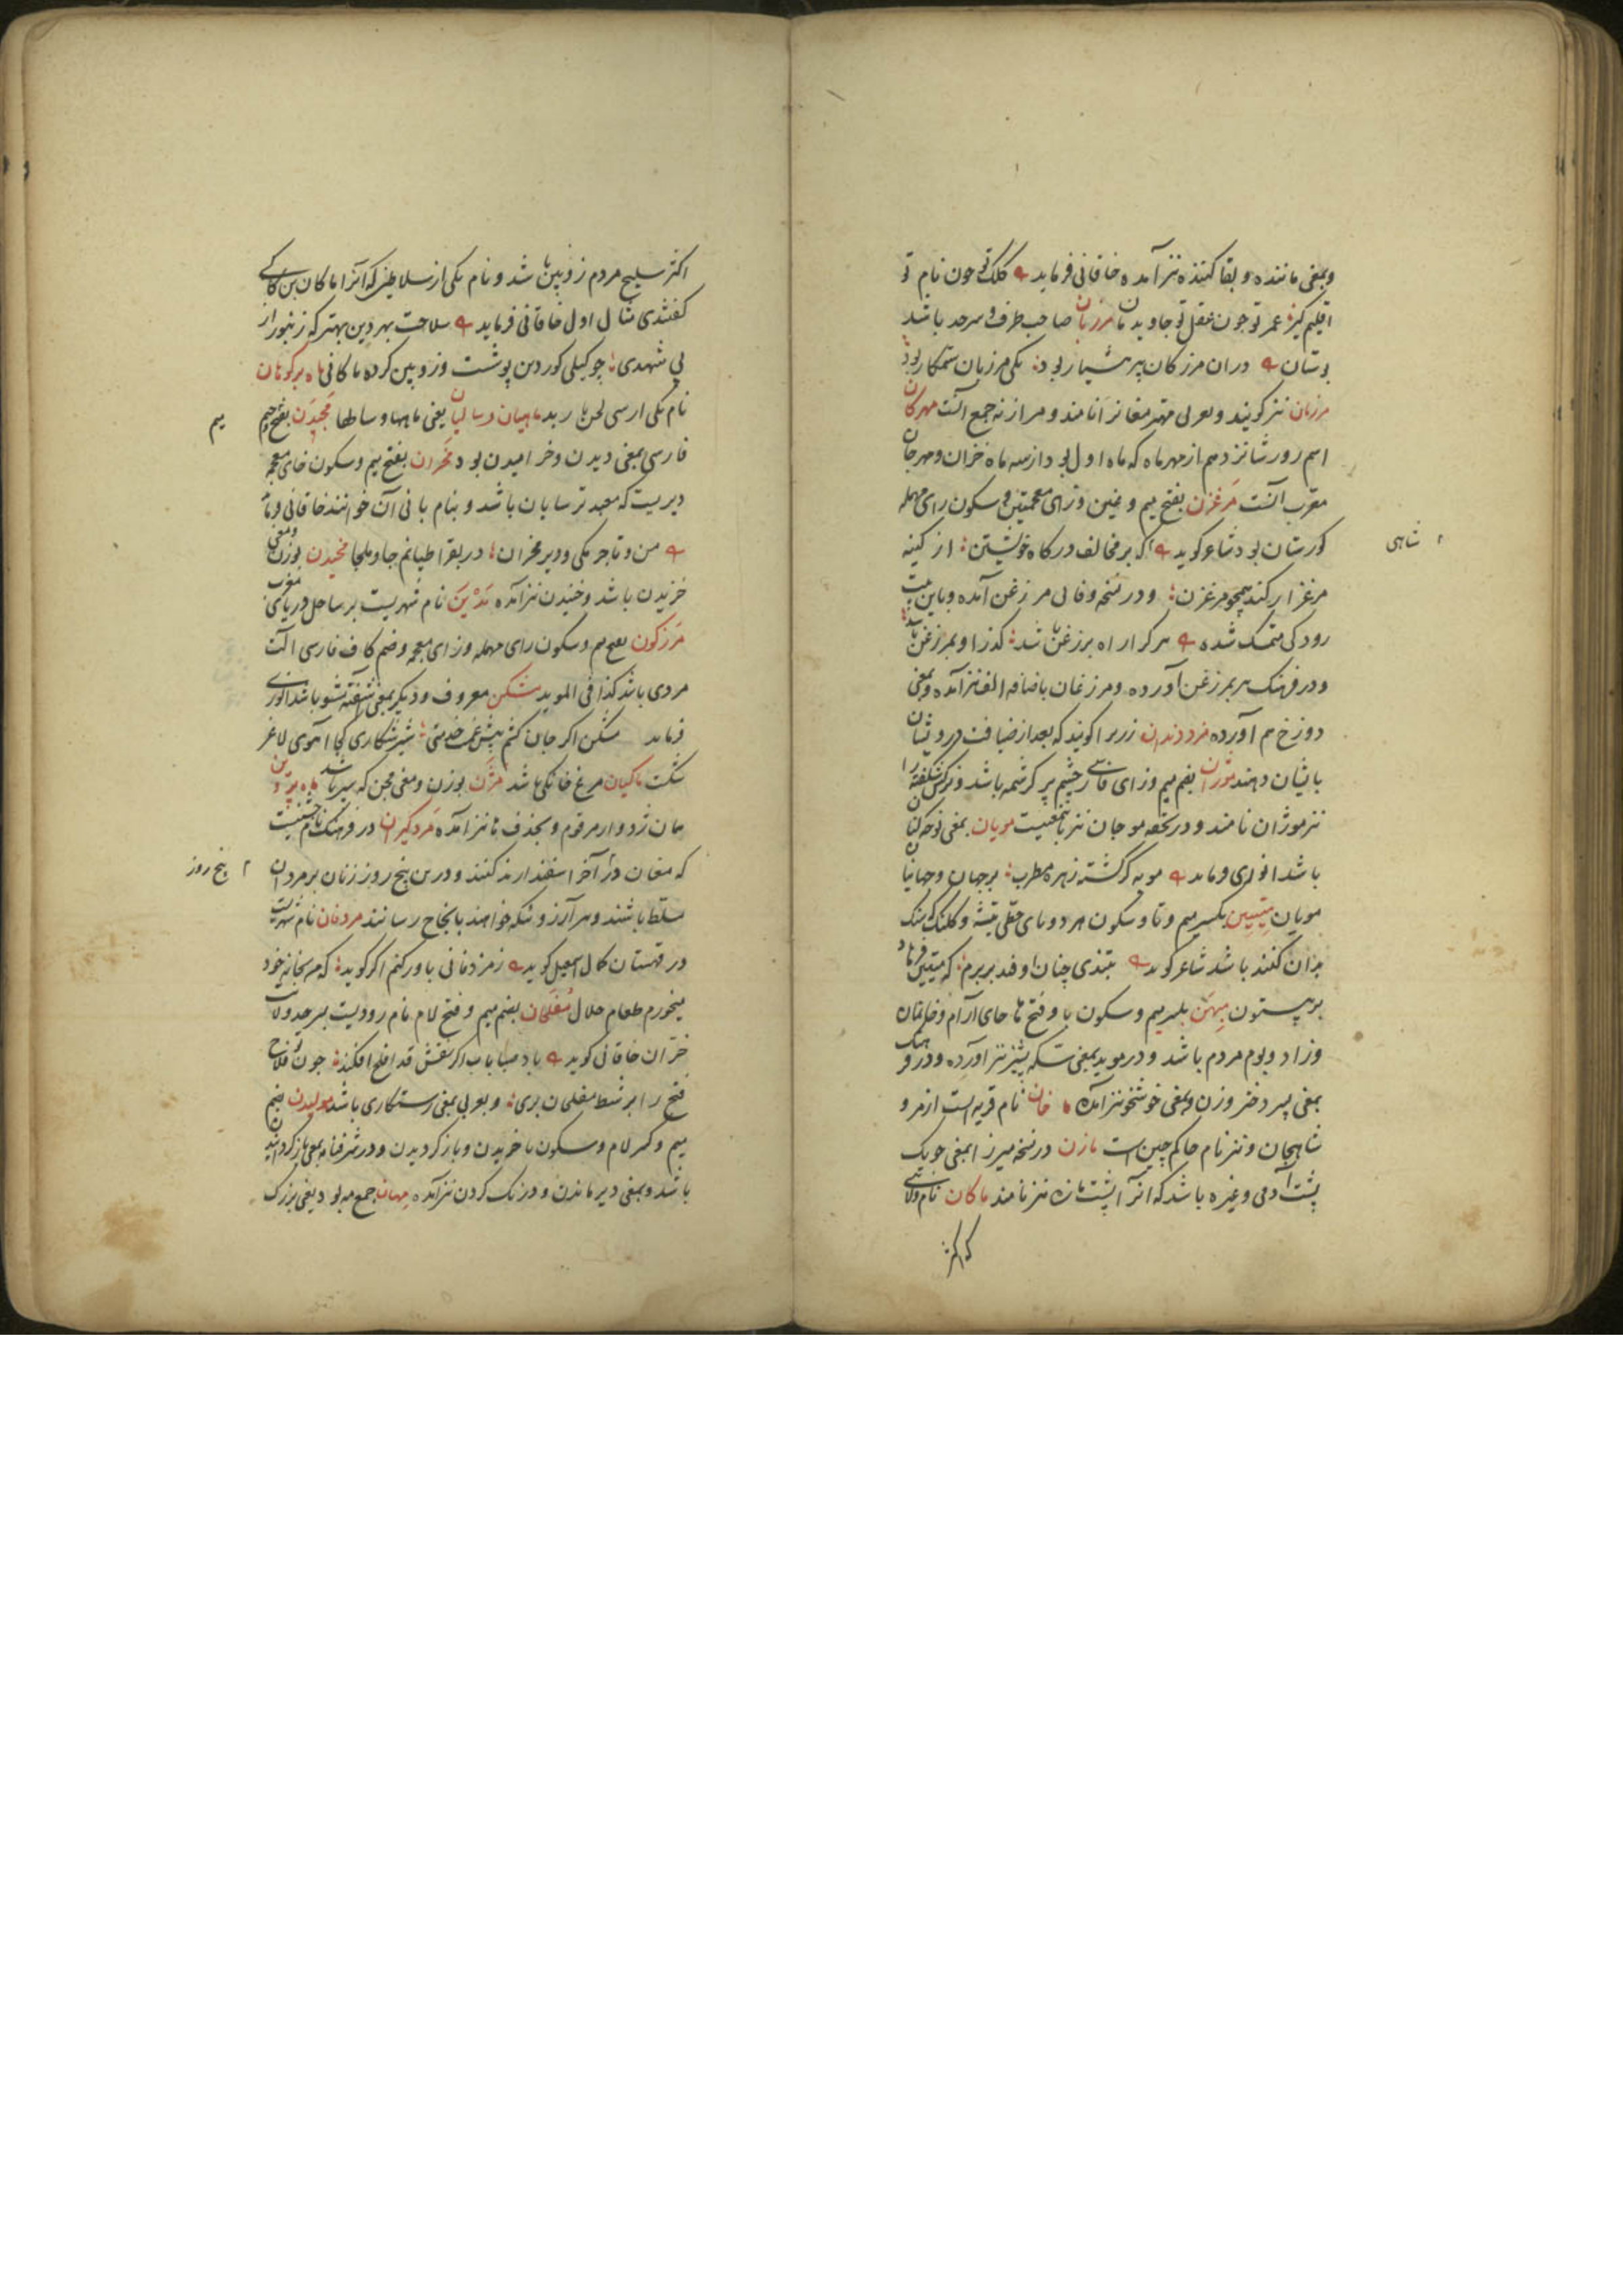 وبمعنی ماننده و بقا کننده نیز آمده خاقانی فرماید کلک تو چون نام تو
اقلیم گیر عمر تو چون عقل تو جاویدمان مرزبان صاحب طرف و سرحد باشد
بوستان دران مرزکان پیر هشیار بود یکی مرزبان ستمکار بود
مرزبان نیز گویند و بعربی مهتر مغانرا نامند و مرازنه جمع آنست مهرکان
اسم روز شانزدهم از مهرماه که ماه اول بود از سه ماه خزان و مهرجان
معرب آنست مرغزن بفتح میم و غین و زای معجمتین و سکون رای مهمله
گورستان بود شاعر گوید اگر بر مخالف درگاه خویشتن از کینه
شاهی
مرغزار کند همچو مرغزن و در نسخه وفائی مرزغن آمده و باین بیت
رودکی متمسک شده هر کرا راه برزغن باشد گذر او بمرزغن باشد
و در فرهنگ هر بمرزغن آورده و مرزغان باضافه الف نیز آمده و بمعنی
دوزخ هم آورده مزد دندان زریرا گویند که بعد از ضیافت درویشان
باایشان دهند موژان بضم میم و زای فارسی چشم پر کرشمه باشد و نرگس شکفته را
نیز موژان نامند و در تحفه موجان نیز باینمعنیست مویان بمعنی نوحه کنان
باشد انوری فرماید مویه گر گشته زهره مطرب بر جهان و جهانیان
مویان میتین بکسر میم و تا و سکون هر دو یای حطی تیشه و کلنک که سنک
بدان کنند باشد شاعر گوید بتندی چنان اوفتد بر برم که میتین فرهاد
بر بیستون میهن بکسر میم و سکون یا و فتح ها جای آرام و خانمان
وزاد و بوم مردم باشد و در موید بمعنی سکه پشیز نیز آورده و در فرهنک
بمعنی پسر دختر و زن و بمعنی خوشخو نیز آمده ماخان نام قریه است از مرو
شاهجان و نیز نام حاکم چین است مازن در نسخه میرزا بمعنی جویک
پشت آدمی و غیره باشد که آنرا پشت مازه نیز نامند ماکان نام ولایتی
که اکثر
اکثر سلیح مردم زوبین باشد و نام یکی از سلاطین که آنرا ماکان بن کاکی
گفتندی مثال اول خاقانی فرماید سلاحت بهر دین بهتر که زنبور از
پی شهدی چو گیلی گوردین پوشت و زوبین کرده ماکانی ماه بر کوهان
نام یکی از سی لحن باربد ماهیان و سالیان یعنی ماهها و سالها مجیدن بفتح جیم
میم
فارسی بمعنی دیدن و خرامیدن بود مخران بفتح میم و سکون خای معجمه
دیریست که معبد ترسایان باشد و بنام بانی آن خوانند خاقانی فرماید
من و تاجرمکی و دیر مخران در بقراطیانم جا و ملجا مخیدن بوزن و معنی
خزیدن باشد و خنیدن نیز آمده مدین نام شهریست بر ساحل دریای مغرب
مرزکون بفتح میم و سکون رای مهمله و زای معجمه و ضم کاف فارسی آلت
مردی باشد کذا فی الموید مشکن معروف و دیگر بمعنی آشفته مشو باشد انوری
فرماید مشکن اگر جان کنم پیش غمت خدمتی شیر شکاری کجا آهوی لاغر
شکست ماکیان مرغ خانکی باشد مژن بوزن و معنی مجن که سپر باشد ماه پروین
همان ژدوار مرقوم و بحذف ها نیز آمده مردگیران در فرهنگ نام جشنیست
که مغان در آخر اسفندارمذ کنند و درین پنج روز زنان بر مردان
پنج روز
مسلط باشند و هر آرزو شکه خواهند بانجاح رسانند مردفان نام شهریست
در قهستان کمال اسمعیل گوید ز مزدقانی باور کنم اگر گوید که من بخانه خود
میخورم طعام حلال مفلحان بضم میم و فتح لام نام رودیست بسرحد ولایت
خزران خاقانی گوید باد صبا بآب اگر نقش قد افلح افکند چون تو فلاح
فتح را بر شط مفلحان بری و بعربی بمعنی رستکاری باشد مولیدن بضم
میم و کسر لام و سکون یا خزیدن و باز گردیدن و در شرفنامه بمعنی باز گردانیدن
باشد و بمعنی دیر ماندن و درنک کردن نیز آمده مهان جمع مه بود یعنی بزرک